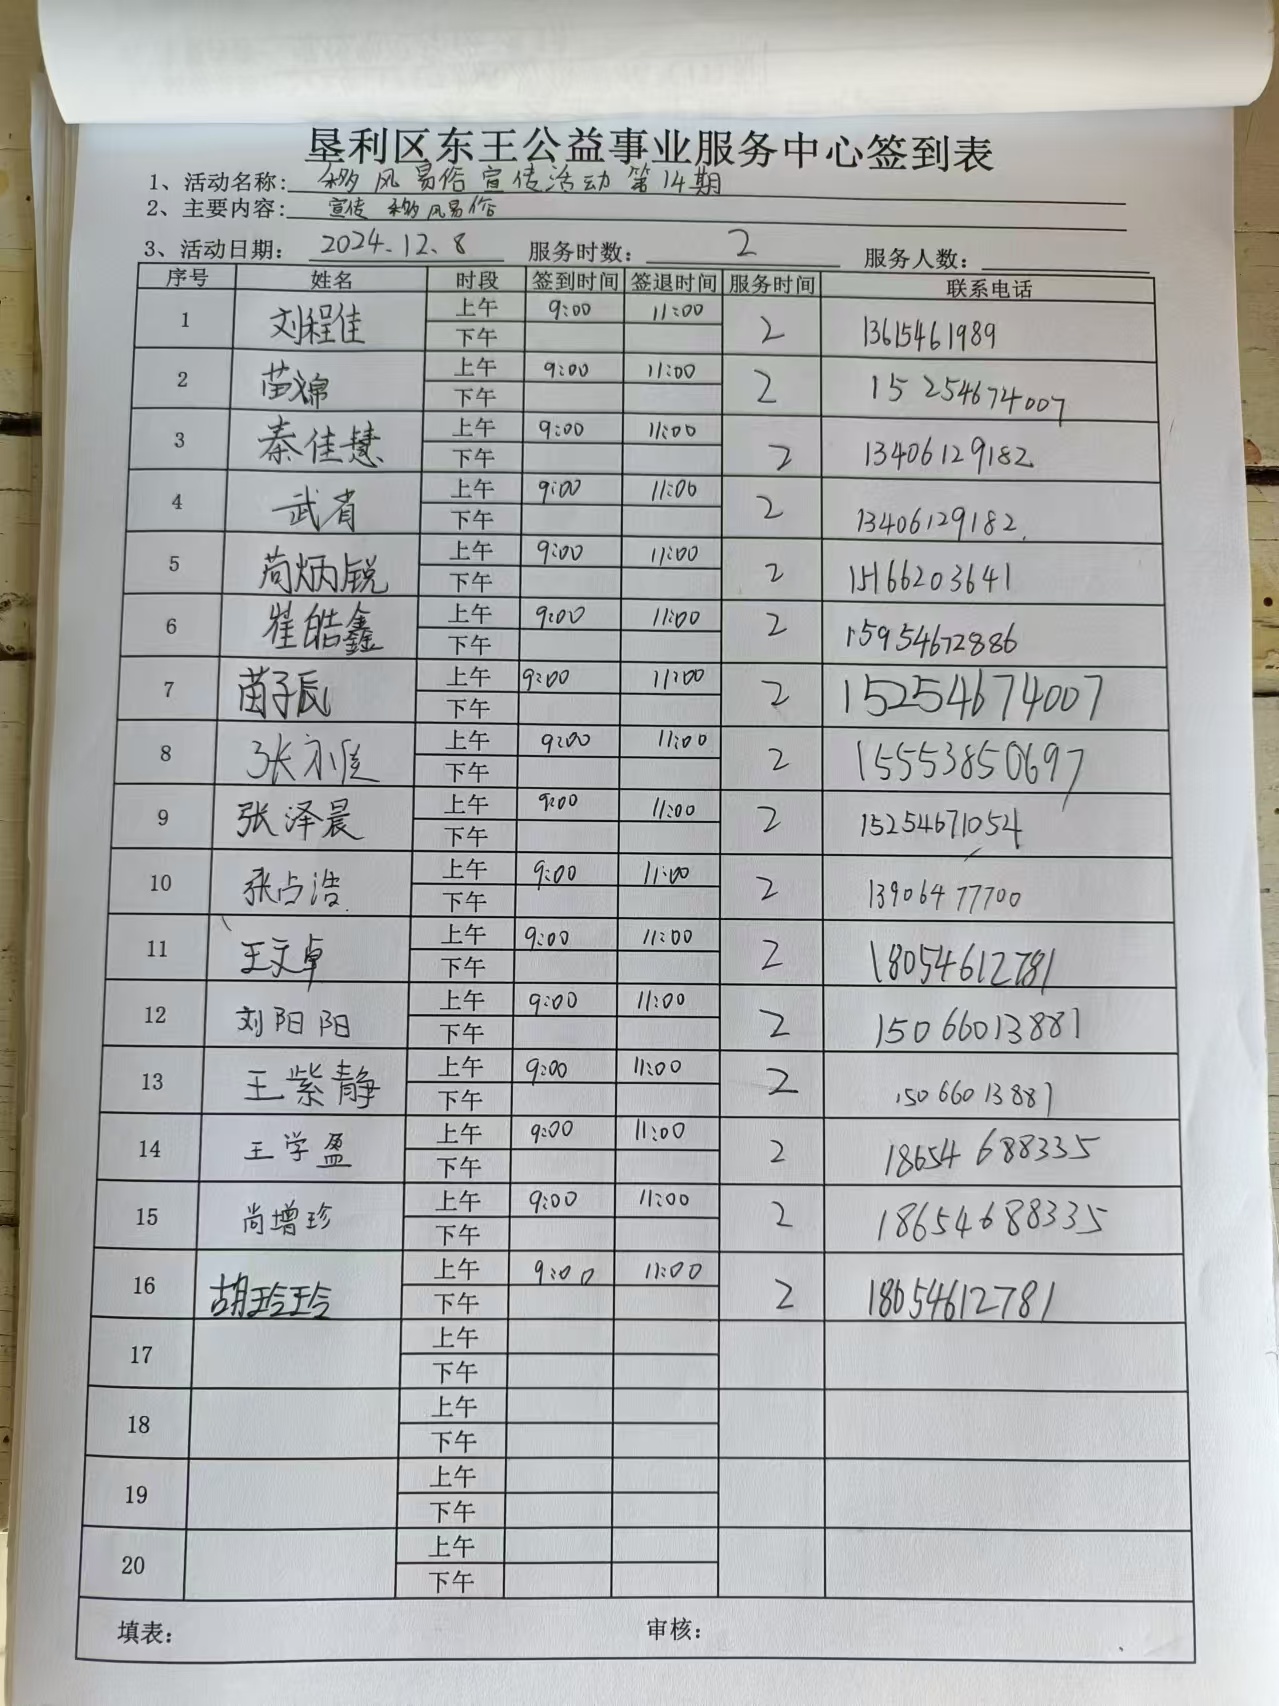 垦利区东王公益事业服务中心签到表
1、活动名称: 移风易俗宣传活动第14期
2、主要内容: 宣传 移风易俗
3、活动日期: 2024.12.8 服务时数: 2 服务人数:
序号 姓名 时段 签到时间 签退时间 服务时间 联系电话
1 刘程佳 上午 9:00 11:00 2 13615461989
下午
2 苗锦 上午 9:00 11:00 2 15254674007
下午
3 秦佳慧 上午 9:00 11:00 2 13406129182
下午
4 武省 上午 9:00 11:00 2 13406129182
下午
5 苟炳锐 上午 9:00 11:00 2 15166203641
下午
6 崔皓鑫 上午 9:00 11:00 2 15954672886
下午
7 苗子辰 上午 9:00 11:00 2 15254674007
下午
8 张 上午 9:00 11:00 2 15553850697
下午
9 张泽晨 上午 9:00 11:00 2 15254671054
下午
10 张占浩 上午 9:00 11:00 2 13906477700
下午
11 王文卓 上午 9:00 11:00 2 18054612781
下午
12 刘阳阳 上午 9:00 11:00 2 15066013881
下午
13 王紫静 上午 9:00 11:00 2 15066013881
下午
14 王学盈 上午 9:00 11:00 2 18654688335
下午
15 尚增珍 上午 9:00 11:00 2 18654688335
下午
16 胡玲玲 上午 9:00 11:00 2 18054612781
下午
17 上午
下午
18 上午
下午
19 上午
下午
20 上午
下午
填表: 审核: